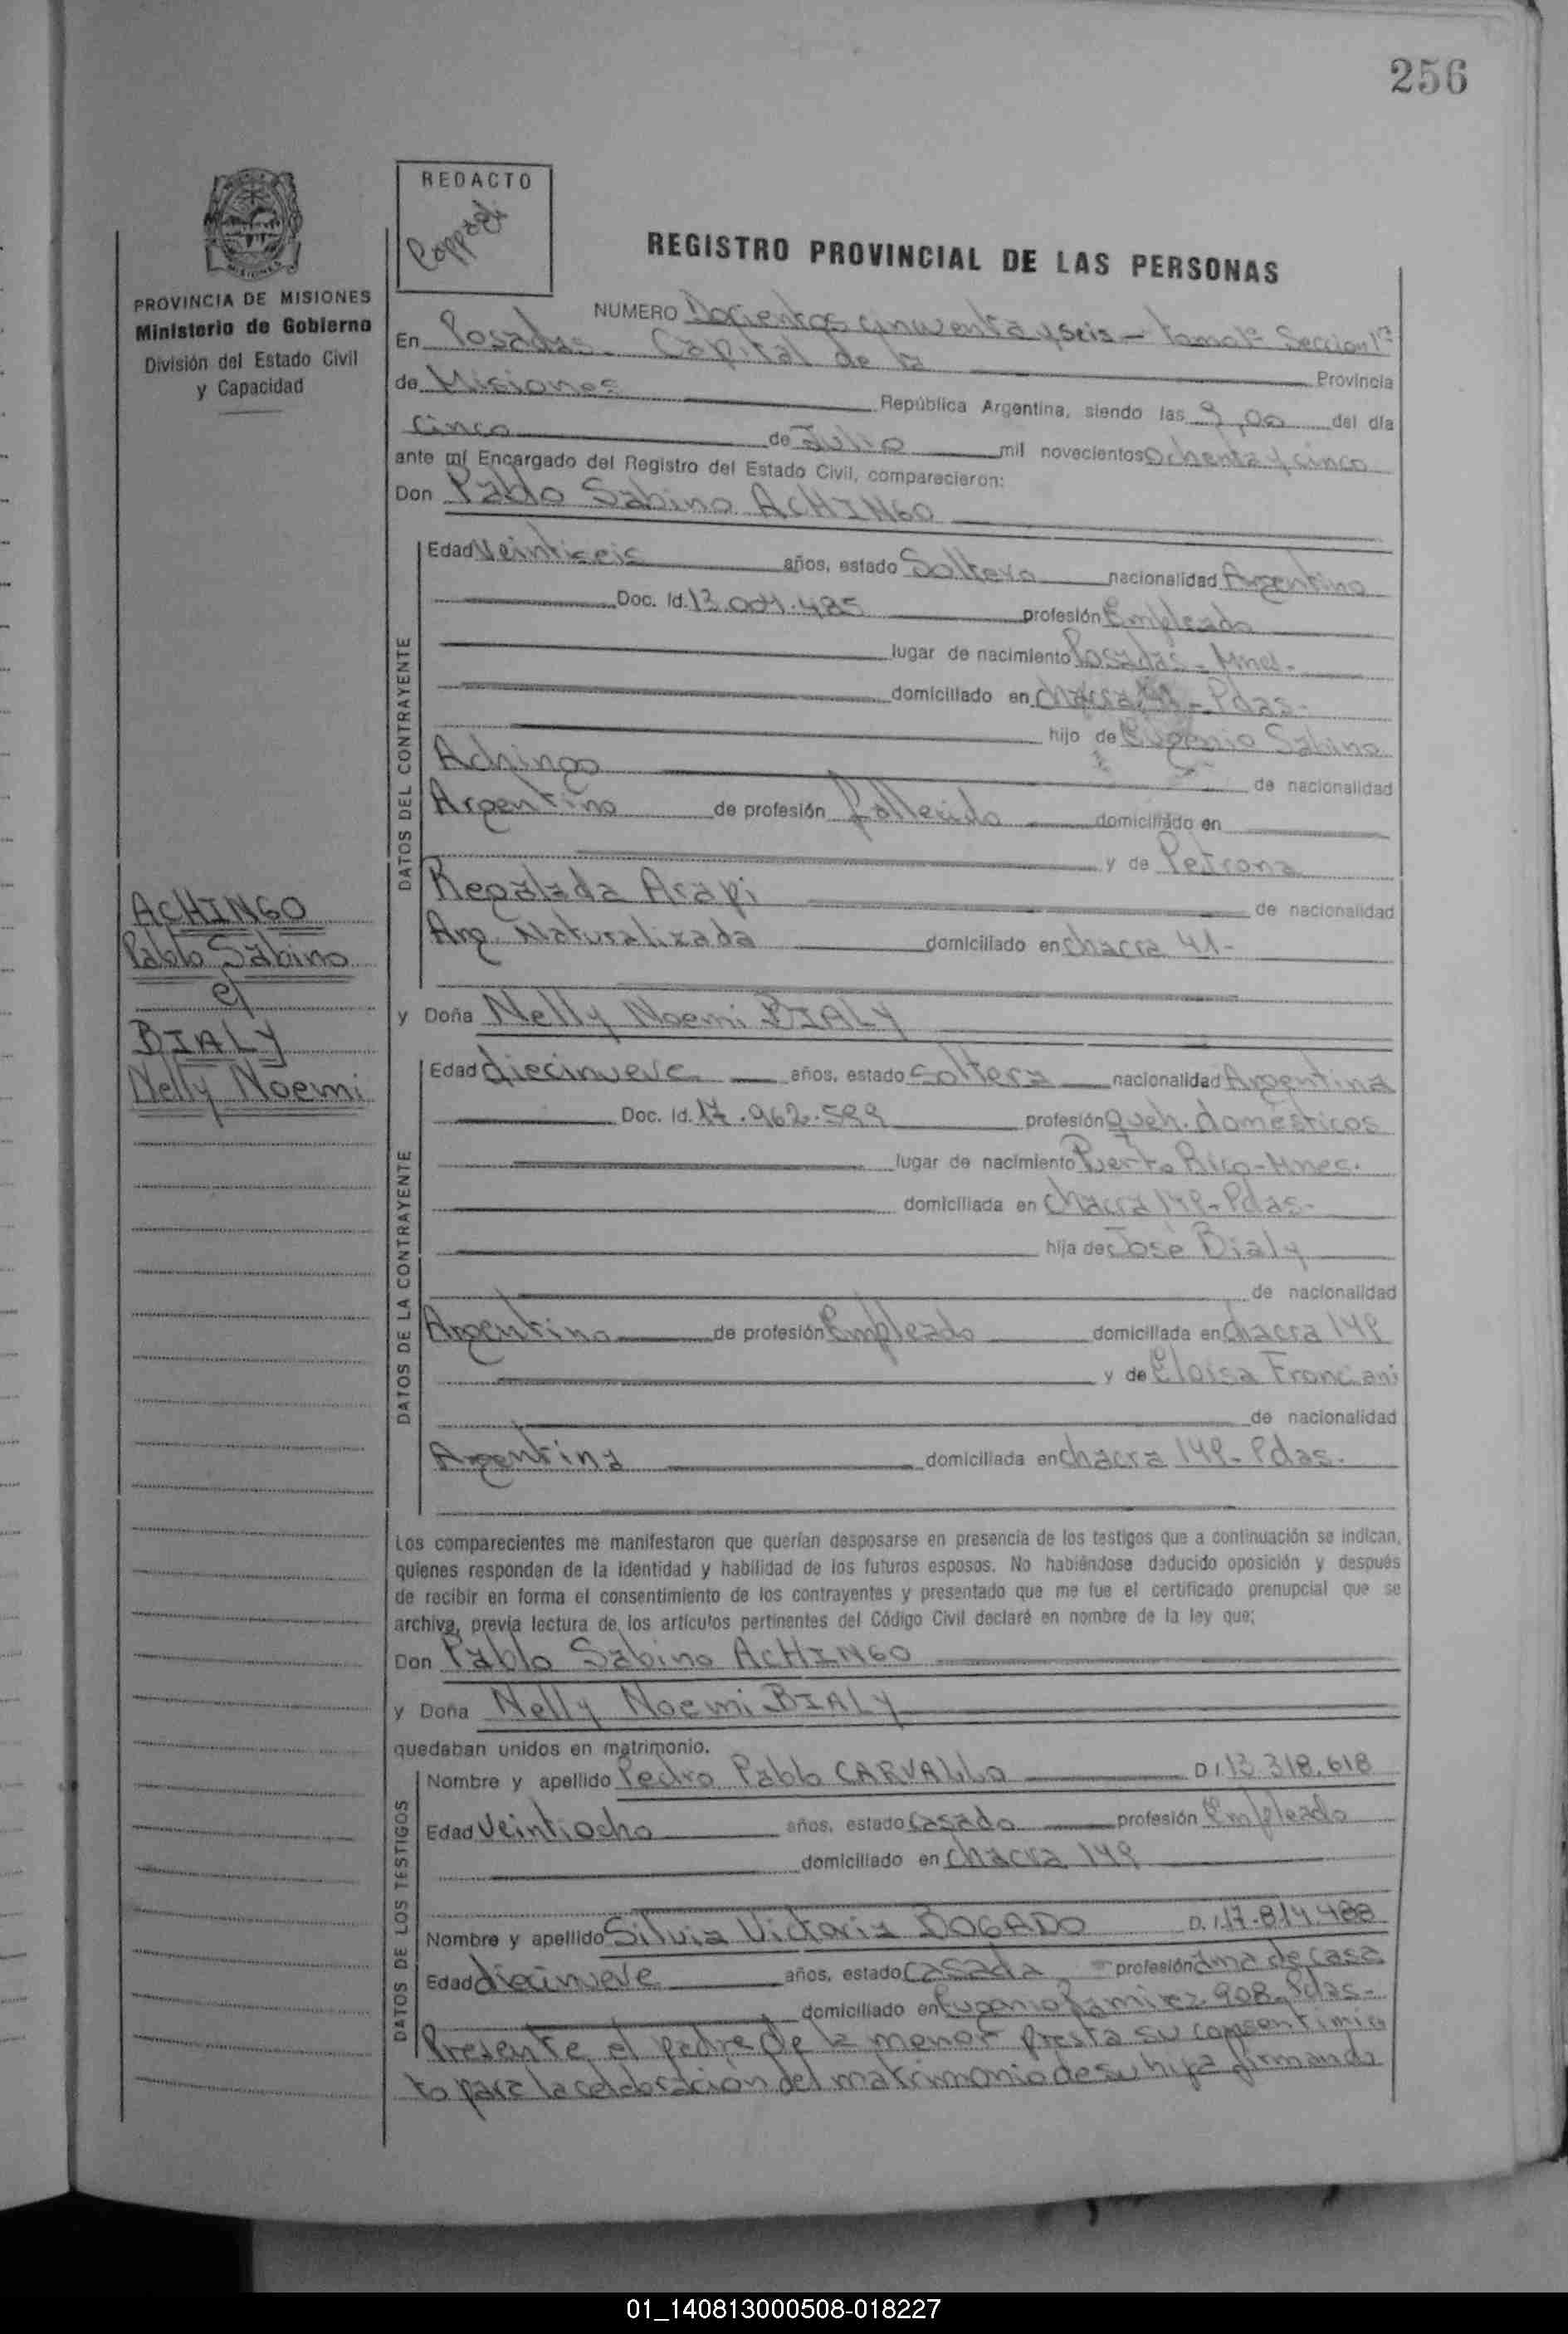 256
REDACTO
REGISTRO PROVINCIAL DE LAS PERSONAS
PROVINCIA DE MISIONES
Ministerio de Gobierno
División del Estado Civil
y Capacidad
NUMERO Docientos cinwenta y seis - tomo 1º Seccion 1ª
En Posadas. Capital de la Provincia
de Misiones República Argentina, siendo las 9,00 del día
Cinco de Julio mil novecientos Ochenta y cinco
ante mí Encargado del Registro del Estado Civil, comparecieron:
Don Pablo Sabino ACHINGO
DATOS DEL CONTRAYENTE
Edad Veintiseis años, estado Soltero nacionalidad Argentino
Doc. Id. 13.001.485 profesión Empleado
lugar de nacimiento Posadas - Mnes.
domiciliado en chacra 41 - Pdas.
hijo de Eugenio Sabino
Achingo de nacionalidad
Argentino de profesión fallecido domiciliado en
y de Petrona
Regalada Acapi de nacionalidad
Arg. Naturalizada domiciliado en chacra 41-
ACHINGO
Pablo Sabino
c/
BIALY
Nelly Noemi
y Doña Nelly Noemi BIALY
DATOS DE LA CONTRAYENTE
Edad diecinueve años, estado soltera nacionalidad Argentina
Doc. Id. 17.962.599 profesión Queh. domésticos
lugar de nacimiento Puerto Rico - Mnes.
domiciliada en chacra 149 - Pdas-
hija de José Bialy
de nacionalidad
Argentino de profesión Empleado domiciliada en chacra 149
y de Eloisa Franciani
de nacionalidad
Argentina domiciliada en chacra 149 - Pdas.
Los comparecientes me manifestaron que querían desposarse en presencia de los testigos que a continuación se indican,
quienes responden de la identidad y habilidad de los futuros esposos. No habiéndose deducido oposición y después
de recibir en forma el consentimiento de los contrayentes y presentado que me fue el certificado prenupcial que se
archiva, previa lectura de los artículos pertinentes del Código Civil declaré en nombre de la ley que;
Don Pablo Sabino ACHINGO
y Doña Nelly Noemi BIALY
quedaban unidos en matrimonio.
DATOS DE LOS TESTIGOS
Nombre y apellido Pedro Pablo CARVALLO D.I. 13.318.618
Edad Veintiocho años, estado casado profesión Empleado
domiciliado en chacra 149
Nombre y apellido Silvia Victoria BOGADO D.I. 17.814.488
Edad diecinueve años, estado casada profesión ama de casa
domiciliado en Eugenio Ramirez 908 - Pdas-
Presente el padre de la menor presta su consentimien
to para la celebracion del matrimonio de su hija firmando
01_140813000508-018227